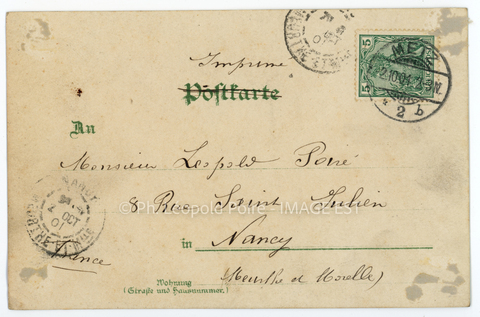 Imprimé
Postkarte
5 5
METZ
2.10.01. 3-4N.
2 b
An
Monsieur Leopold Poiré
8 Rue Saint Julien
© Ph. Léopold Poiré - IMAGE'EST
in Nancy
NANCY
2
OCT
01
MEURTHE
France
Meurthe et Moselle)
Wohnung
(Straße und Hausnummer.)